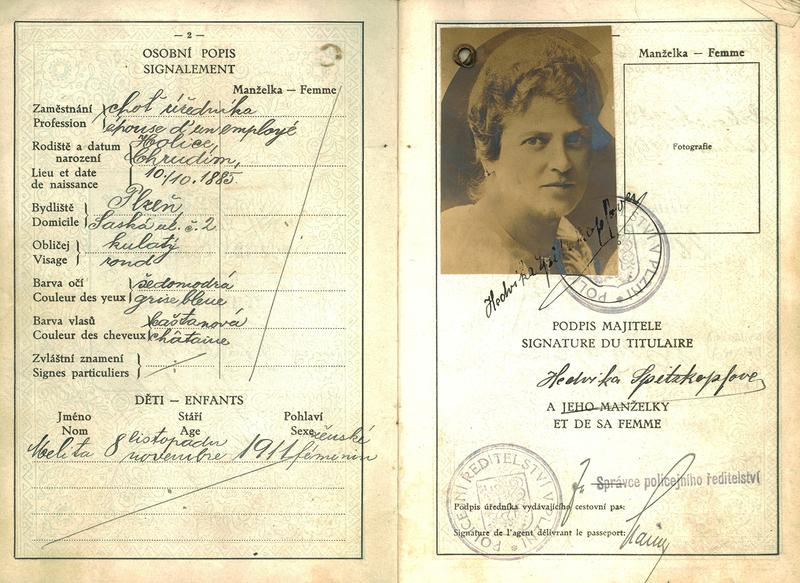 — 2 —
OSOBNÍ POPIS
SIGNALEMENT
Manželka — Femme
Zaměstnání choť úředníka
Profession épouse d'un employé
Rodiště a datum narození Holice,
Chrudim,
Lieu et date de naissance 10./10. 1885.
Bydliště Plzeň
Domicile Saská ul. č. 2
Obličej kulatý
Visage rond
Barva očí šedomodrá
Couleur des yeux grise bleue
Barva vlasů kaštanová
Couleur des cheveux châtaine
Zvláštní znamení
Signes particuliers
DĚTI — ENFANTS
Jméno Stáří Pohlaví
Nom Age Sexe
Melita 8 listopadu 1911 ženské
novembre féminin
Manželka — Femme
Fotografie
Hedvika Spitzkopfova
POLICEJNÍ ŘEDITELSTVÍ V PLZNI
PODPIS MAJITELE
SIGNATURE DU TITULAIRE
Hedvika Spitzkopfova
A JEHO MANŽELKY
ET DE SA FEMME
POLICEJNÍ ŘEDITELSTVÍ V PLZNI
Správce policejního ředitelství
Podpis úředníka vydávajícího cestovní pas:
Signature de l'agent délivrant le passeport: